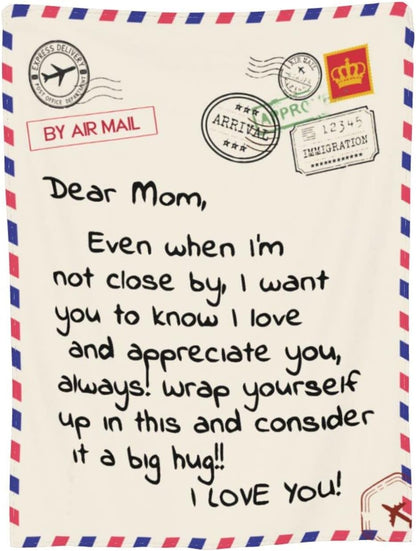 EXPRESS DELIVERY
POST OFFICE DEPARTMENT
BY AIR MAIL
AIR MAIL
ARRIVAL
12345
IMMIGRATION
Dear Mom,
Even when i'm
not close by, I want
you to know I love
and appreciate you,
always! wrap yourself
up in this and consider
it a big hug!!
I LOVE YOU!